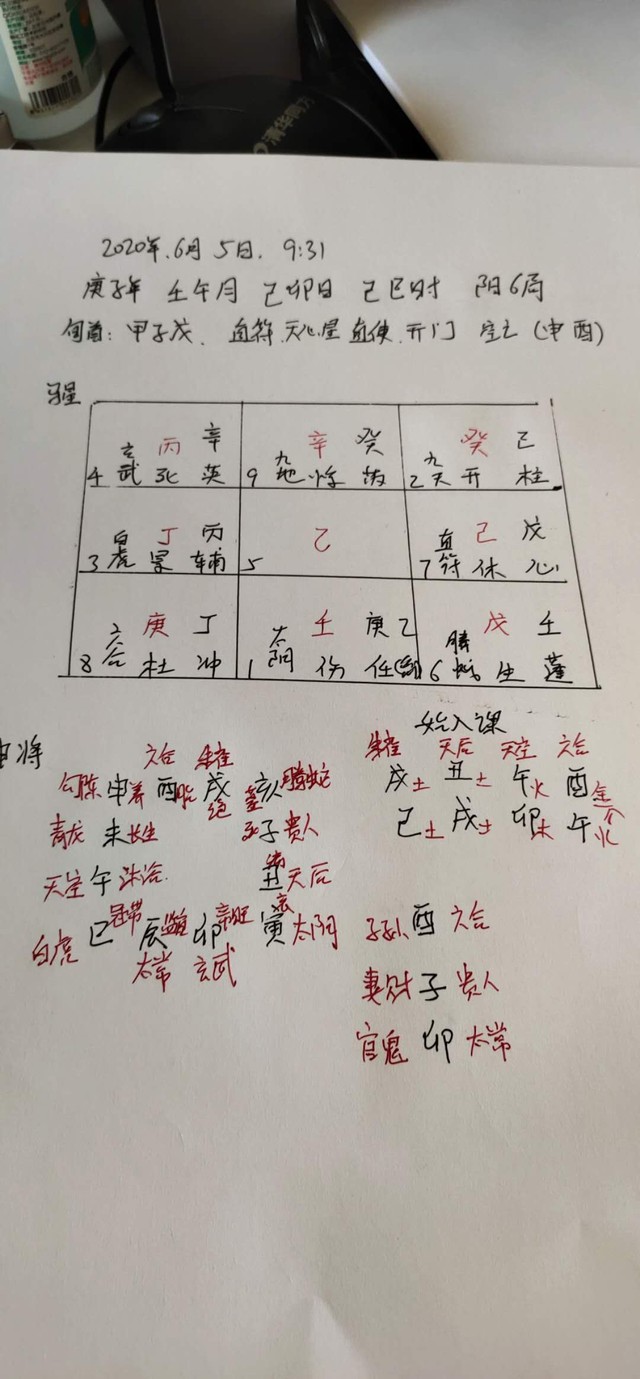 清华同方
2020年.6月5日. 9:31
庚子年 壬午月 己卯日 己巳时 阳6局
旬首:甲子戊、直符.天心星 直使.开门 空亡(申酉)
马星
丙 辛 辛 癸 癸 己
4 玄武 死 英 9 九地 惊 2 九天 开 柱
丁 丙 乙 己 戊
3 白虎 景 辅 5 7 直符 休 心
庚 丁 壬 庚 乙 戊 壬
8 六合 杜 冲 1 太阴 伤 任 6 腾蛇 生 蓬
始入课
六合 朱雀 朱雀 天后 天空 六合
勾陈 申养 酉胎 戌绝 亥 腾蛇 戌土 丑土 午火 酉金
青龙 未长生 子 贵人 己土 戌土 卯木 午火
天空 午 沐浴 丑 天后
白虎 巳 冠带 辰 卯 寅 太阴 子孙 酉 六合
太常 玄武
妻财 子 贵人
官鬼 卯 太常